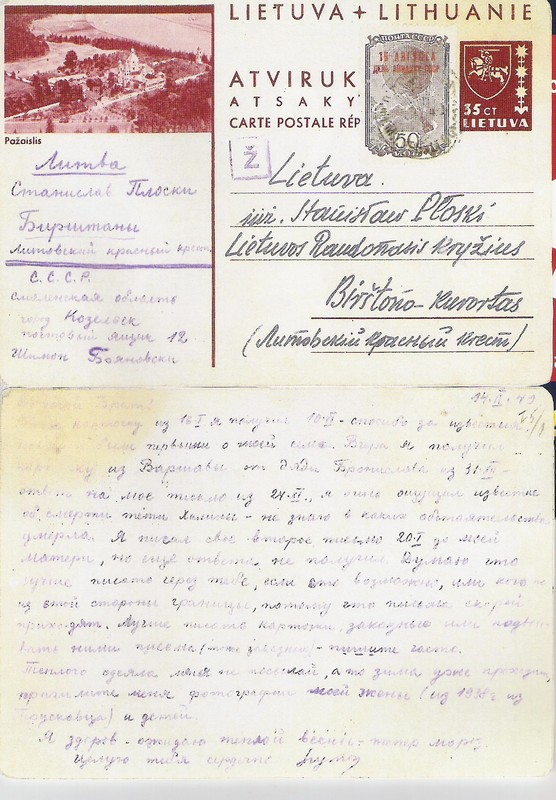 LIETUVA + LITHUANIE
ATVIRUK
ATSAKY
CARTE POSTALE RÉP
ПОЧТА СССР
18 АВГУСТА
ДЕНЬ АВИАЦИИ СССР
50
35 CT
LIETUVA
Pažaislis
Ž
Литва
Станислав Плоски
Бирштаны
Литовский красный крест
С.С.С.Р.
Смоленская область
город Козельск
почтовый ящик 12
Шимон Бояновски
Lietuva.
inż. Stanisław Płoski
Lietuvos Raudonasis Kryžius
Birštono-Kurortas
(Литовский Красный Крест)
14.II.40
из 16 I я получил 10.II - спасибо за известия
первыми о моей семье. Вчера я получил
из Варшавы от дяди Бронислава из 31.XII -
ответ на мое письмо из 24.XI, я очень ощущил известие
об смерти тети Халины - не знаю в каких обстоятельствах
умерла. Я писал свое второе письмо 20.I до моей
матери, но ещё ответа не получил. Думаю что
лучше писать через тебе, если это возможно, или кого
из этой стороны границы, потому что письма скорей
приходят. Лучше писать картки, заказные или
ними письма (тоже заказные) - пишите часто.
Теплого одеяла меня не посылай, а то зима уже проходит,
меня фотографии моей жены (из 1938г из
Трускавца) и детей.
Я здоров - ожидаю теплой весны - теперь мороз.
Целую тебя сердечно